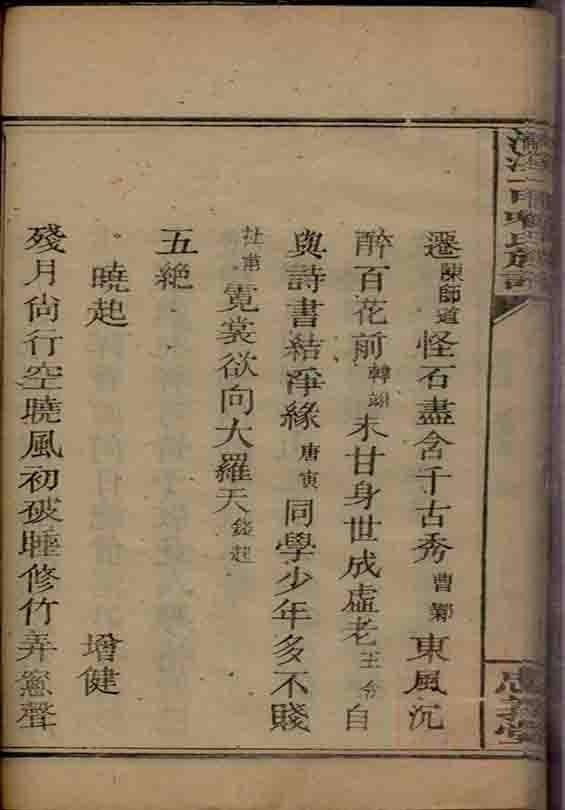 遷陳師道怪石盡含千古秀曹鄴東風沉
醉百花前韓翃未甘身世成虛老王令自
與詩書結淨緣唐寅同學少年多不賤
杜甫霓裳欲向大羅天錢起
五絶
曉起 增健
殘月尙行空曉風初破睡修竹弄窻聲